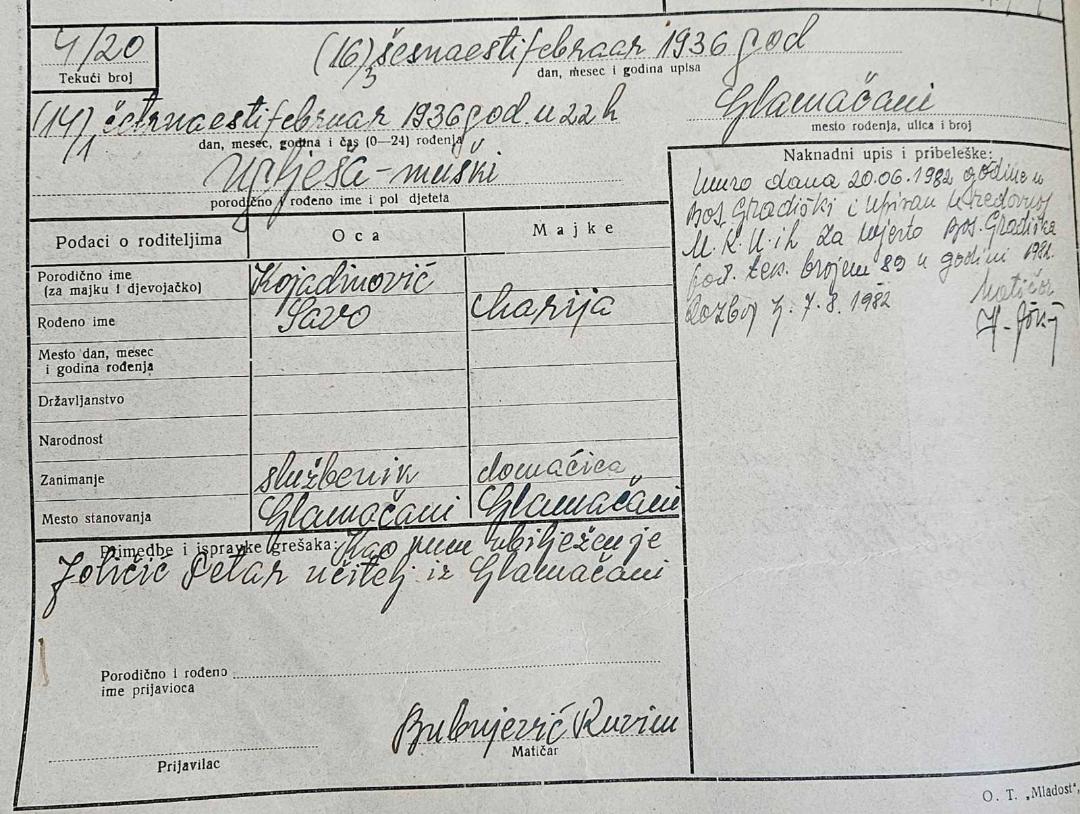 4/20
Tekući broj
(16) šesnaesti februar 1936 god
3
dan, mesec i godina upisa
(14) četrnaesti februar 1936 god. u 22 h
/1
dan, mesec, godina i čas (0—24) rođenja
Glamačani
mesto rođenja, ulica i broj
Uglješa - muški
porodično i rođeno ime i pol djeteta
Naknadni upis i pribeleške:
Umro dana 20.06.1982 godine u
Bos. Gradiški i upisan u redovnoj
M.K.U-ih za mjesto Bos. Gradiška
pod. tek. brojem 89 u godini 1982.
Razboj Lj. 7.8.1982
Matičar
Podaci o roditeljima
Oca
Majke
Porodično ime
(za majku i djevojačko)
Kojadinović
Rođeno ime
Savo
Marija
Mesto dan, mesec
i godina rođenja
Državljanstvo
Narodnost
Zanimanje
službenik
domaćica
Mesto stanovanja
Glamačani
Glamačani
Primedbe i ispravke grešaka: Kao kum ubilježen je
Petar učitelj iz Glamačani
Porodično i rođeno
ime prijavioca
Prijavilac
Bubnjević
Matičar
O. T. „Mladost",